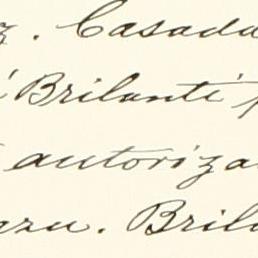 z. Casada
Brilanti
autoriza
gzu. Brila